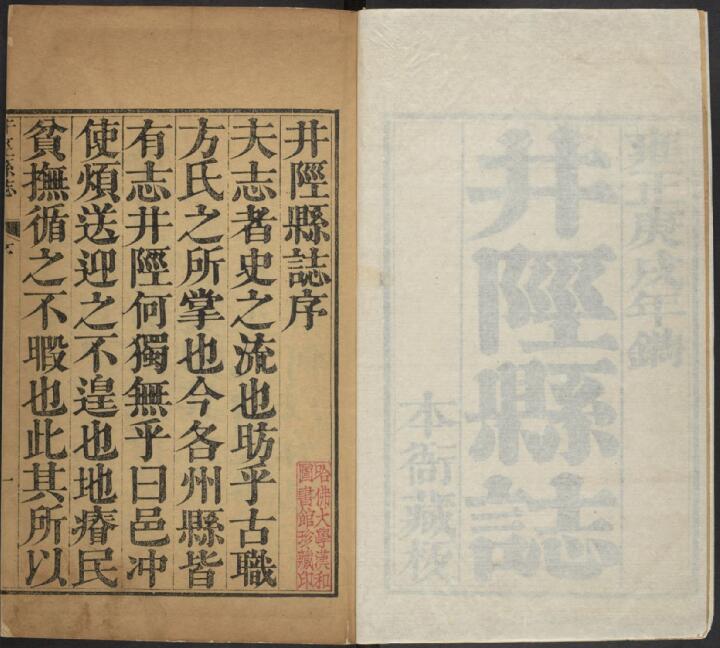 雍正庚戌年鐫
井陘縣誌
本衙藏板
井陘縣誌序
夫志者史之流也昉乎古職
方氏之所掌也今各州縣皆
有志井陘何獨無乎曰邑冲
使煩送迎之不遑也地瘠民
貧撫循之不暇也此其所以
哈佛大學漢和
圖書館珍藏印